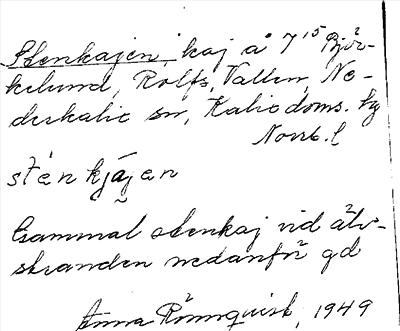 Stenkajen, kaj å 7¹⁵ Björ-
kelund, Rolfs, Vallen, Ne-
derkalix sn, Kalix doms. hg
Norrb. l
sténkjàjen
Gammal stenkaj vid älv-
stranden nedanför gd
Anna Rönnquist, 1949